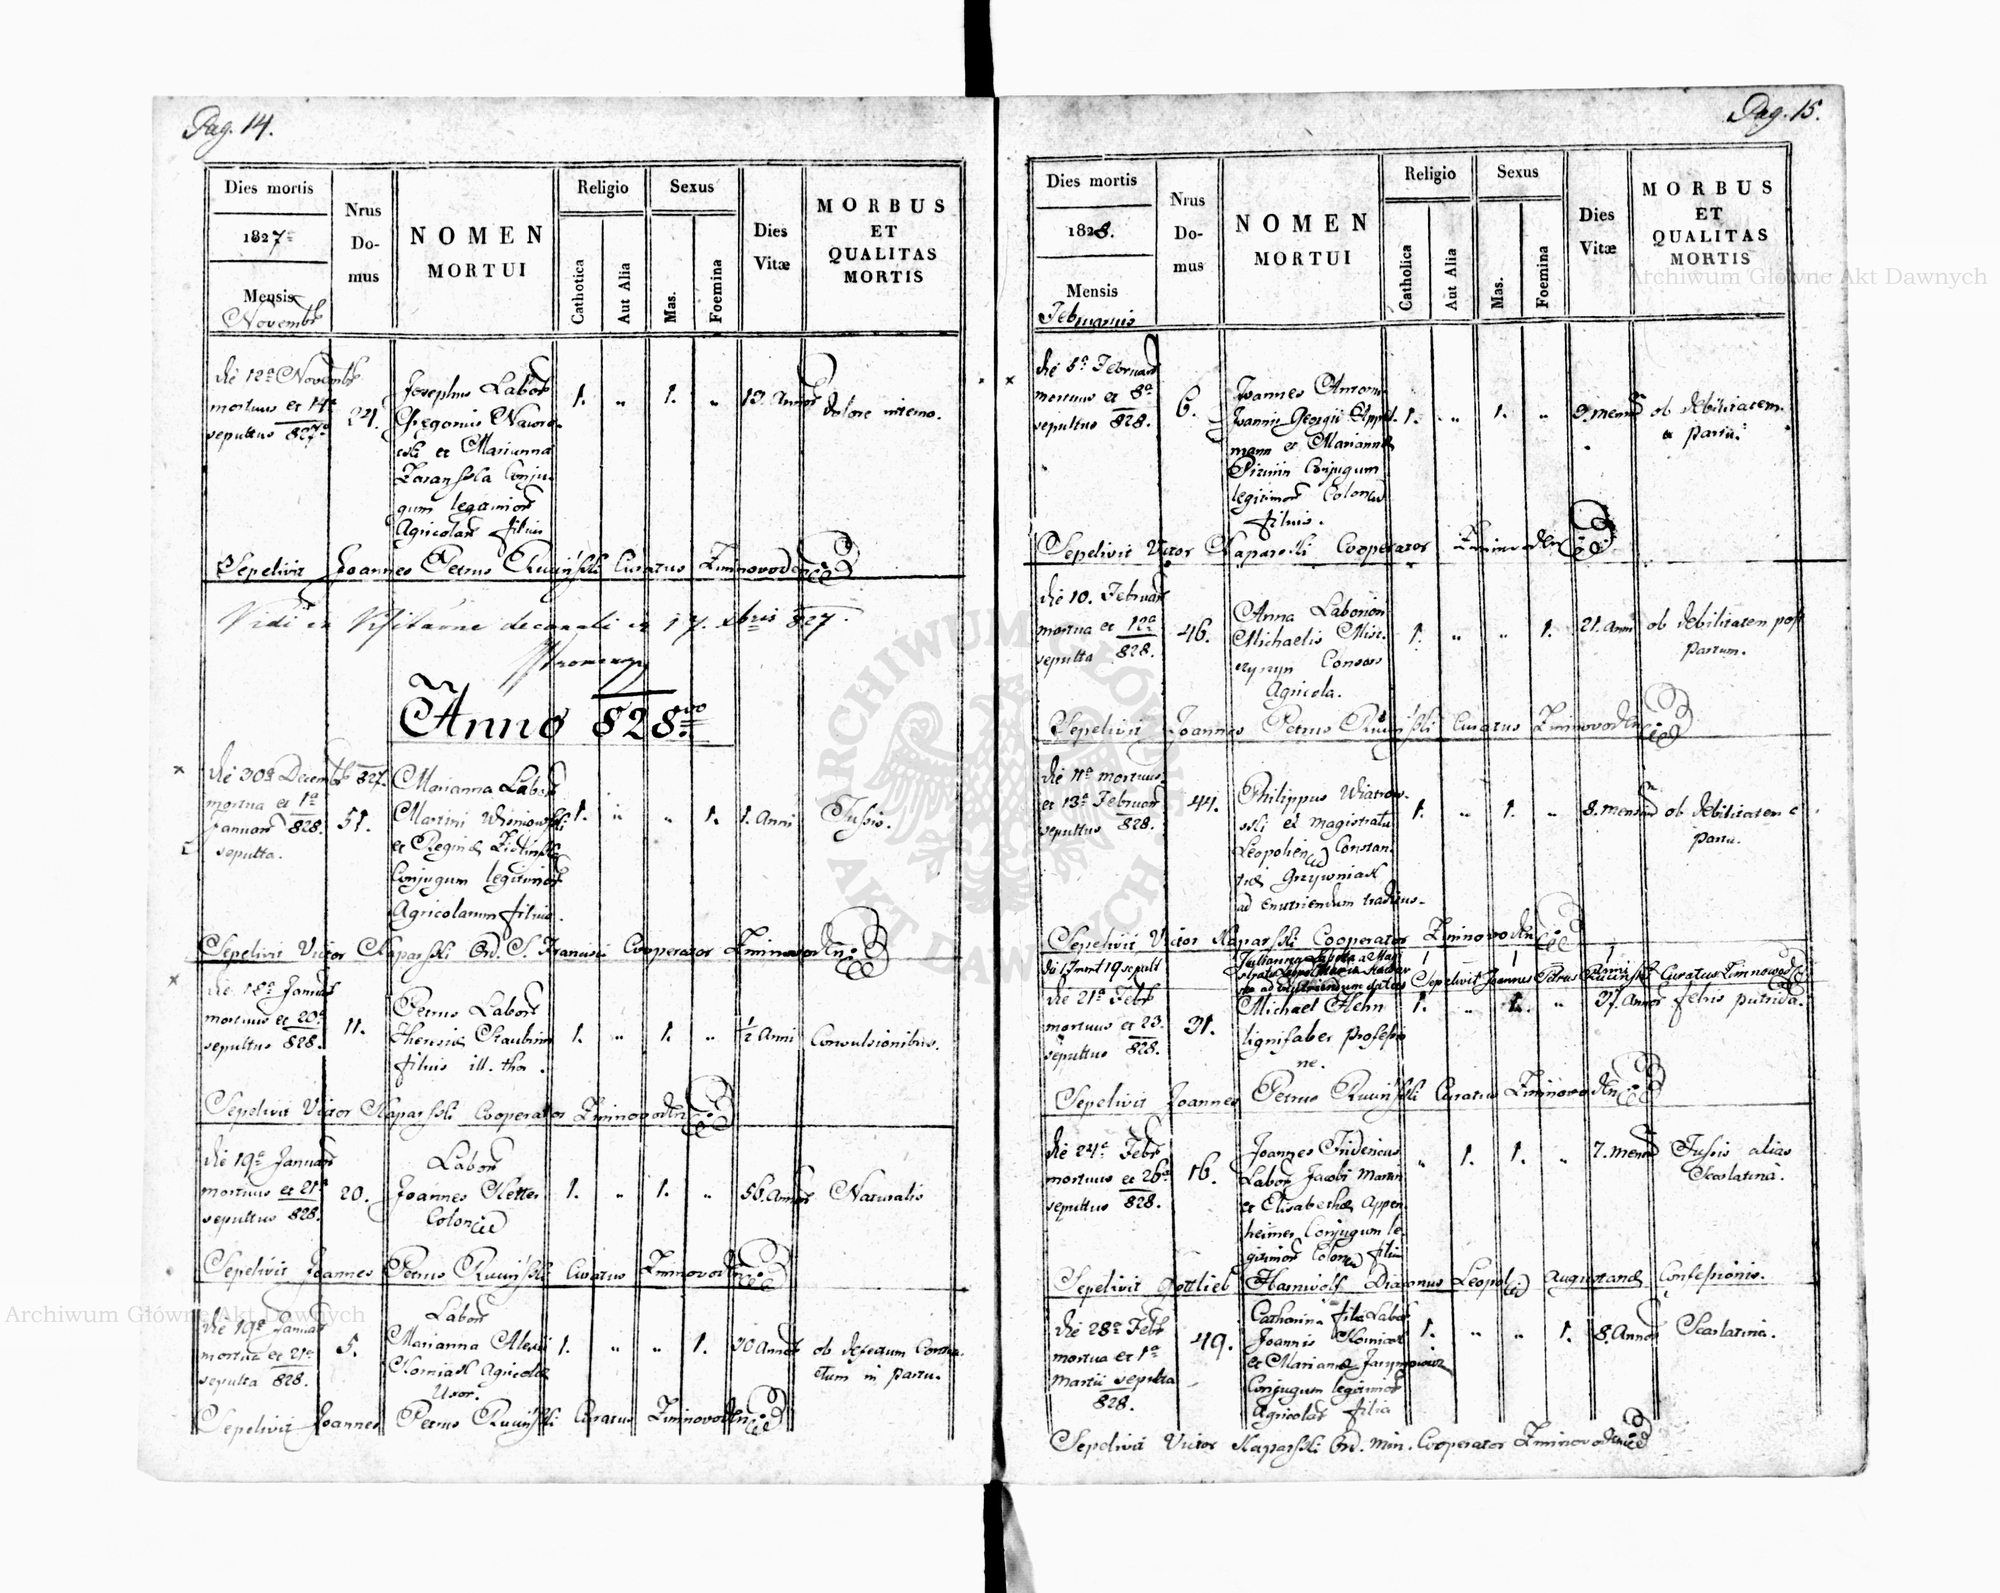 Pag. 14.
Dies mortis
1827
Mensis
Novembr
Nrus
Do-
mus
NOMEN
MORTUI
Religio
Catholica
Aut Alia
Sexus
Mas.
Foemina
Dies
Vitæ
MORBUS
ET
QUALITAS
MORTIS
die 12a Novembr
mortuus et 14a
sepultus 827
Josephus Labor
Gregorius Nawro-
cski et Marianna
Conju-
gum legitimor
Agricolar filius
1. " 1. "
13. Annor
dolore interno.
Sepelivit Joannes Petrus Curatus Zimnovoden
Vidi in Visitatione decanali 17. xbris 827.
Anno 828vo
die 30a Decembr 827.
mortua et 1a
Januar 828.
sepulta.
51.
Marianna Labor
Martini Wisniowski
et Reginæ
Conjugum legitimor
Agricolarum filia.
1. " " 1.
1. Anni
Tussis.
Sepelivit Victor Kaparski Ord. S. Francisci Cooperator Zimnovoden
die 18a Januar
mortuus et 20a
sepultus 828.
11.
Petrus Labor
Theresiæ Staubin
filius ill. thor.
1. " 1. "
1/2 Anni
Convulsionibus.
Sepelivit Victor Kaparski Cooperator Zimnovoden
die 19a Januar
mortuus et 21a
sepultus 828.
20.
Labor
Joannes Ketter
Colon
1. " 1. "
56. Annor
Naturalis
Sepelivit Joannes Petrus Curatus Zimnovoden
die 19a Januar
mortua et 21a
sepulta 828.
5.
Labor
Marianna Alexii
Chomiak Agricolæ
Uxor.
1. " " 1.
30 Annor
ob defectum
in partu.
Sepelivit Joannes Petrus Curatus Zimnovoden
Pag. 15.
Dies mortis
1828.
Mensis
Februarius
Nrus
Do-
mus
NOMEN
MORTUI
Religio
Catholica
Aut Alia
Sexus
Mas.
Foemina
Dies
Vitæ
MORBUS
ET
QUALITAS
MORTIS
die 5a Februar
mortuus et 8a
sepultus 828.
6.
Joannes Antoni
Joannis Georgii Appel-
mann et Mariannæ
Conjugum
legitimor Colon
filius.
1. " 1. "
9. mens
ob debilitatem
a partu.
Sepelivit Victor Kaparski Cooperator Zimnoden
die 10. Februar
mortua et 12a
sepulta 828.
46.
Anna Laborios
Michaelis Mist-
Consors
Agricola.
1. " " 1.
21. Anni
ob debilitatem post
partum.
Sepelivit Joannes Petrus Curatus Zimnovoden
die 11a mortuus
et 13a Februar
sepultus 828.
44.
Philippus Wiatrow-
ski et magistratu
Leopolien Constan-
tiæ Grzywniak
ad enutriendum traditus.
1. " 1. "
8. mensium
ob debilitatem e
partu.
Sepelivit Victor Kaparski Cooperator Zimnovoden
die 17 mort 19 sepult
Julianna
ad enutriendum
Sepelivit Joannes Petrus Curatus Zimnowod
die 21a Febr
mortuus et 23.
sepultus 828.
31.
Michael Hehn
lignifaber professio
ne.
1. " 1. "
37. Annor
febris putrida.
Sepelivit Joannes Petrus Curatus Zimnovoden
die 24a Febr
mortuus et 26a
sepultus 828.
16.
Joannes Fridericus
Labor Jacobi Martin
et Elisabethæ Appen-
heimer Conjugum le-
gitimor Colon filius
" 1. 1. "
7. mens
Tussis alias
Scarlatina.
Sepelivit Gottlieb Diaconus Leopol Augustanæ Confessionis.
die 28a Febr
mortua et 1a
Martii sepulta
828.
49.
Catharina filia Labor
Joannis Chomicak
et Mariannæ Jarymowicz
Conjugum legitimor
Agricolar filia
1. " " 1.
8. Annor
Scarlatina.
Sepelivit Victor Kaparski Ord. Min. Cooperator Zimnovoden
Archiwum Główne Akt Dawnych
ARCHIWUM GŁÓWNE AKT DAWNYCH
Archiwum Główne Akt Dawnych